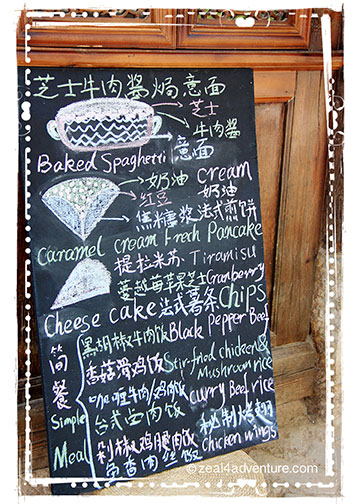 芝士牛肉酱焗意面
芝士
牛肉酱
意面
Baked Spaghetti
奶油 cream
红豆 奶油
焦糖浆 法式煎饼
Caramel cream Frech Pancake
提拉米苏、Tiramisu
蔓越莓苹果芝士 Cranberry
Cheese cake 法式薯条 Chips
简餐 Simple Meal
黑胡椒牛肉饭 Black Pepper Beef
香菇滑鸡饭 Stir-fried chicken &
Mushroom rice
咖喱牛肉/鸡肉饭 curry Beef rice
台式卤肉饭 秘制烤翅
剁椒鸡腿肉饭 chicken wings
鱼香肉丝饭
© zeal4adventure.com